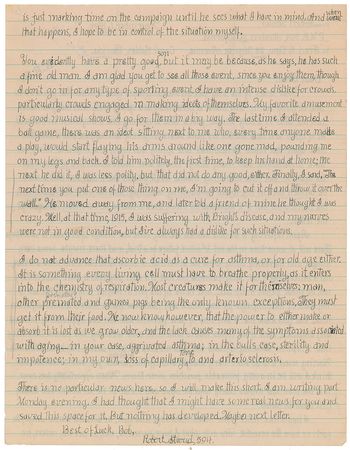 is just marking time on the campaign until he sees what I have in mind. And when
that happens, I hope to be in control of the situation myself.
You evidently have a pretty good son, but it may be because, as he says, he has such
a fine old man. I am glad you get to see all those event, since you enjoy them, though
I don't go in for any type of sporting event. I have an intense dislike for crowds,
particularly crowds engaged in making idiots of themselves. My favorite amusement
is good musical shows. I go for them in a big way. The last time I attended a
ball game, there was an idiot sitting next to me who, every time anyone made
a play, would start flaying his arms around like one gone mad, pounding me
on my legs and back. I told him politely, the first time, to keep his hand at home; the
next he did it, I was less polity, but that did not do any good, either. Finally, I said, "The
next time you put one of those thing on me, I'm going to cut it off and throw it over the
wall." He moved away from me, and later told a friend of mine he thought I was
crazy. Well, at that time, 1915, I was suffering with Bright's disease, and my nurves
were not in good condition, but I've always had a dislike for such situations.
I do not advance that ascorbic acid as a cure for asthma, or for old age either.
It is something every living cell must have to breathe properly, as it enters
into the chemistry of respiration. Most creatures make it for themselves; man,
other primates and guinea pigs being the only known exceptions. They must
get it from their food. We now know, however, that the power to either make or
absorb it is lost as we grow older, and the lack causes many of the symptoms associated
with aging— in your case, aggrivated asthma; in the bulls case, sterility and
impotence; in my own, loss of capillary and arterio sclerosis.
There is no particular news here, so I will make this short. I am writing part
Monday evening. I had thought that I might have some real news for you and
saved this space for it. But nothing has developed. Maybe next letter.
Best of Luck, Bob,
Robert Stroud, 504.